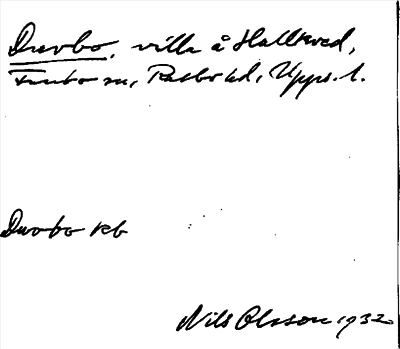 Duvbo, villa å Hallkved,
Funbo sn, Rasbo hd, Upps. l.
Duvbo kb
Nils Olsson 1932